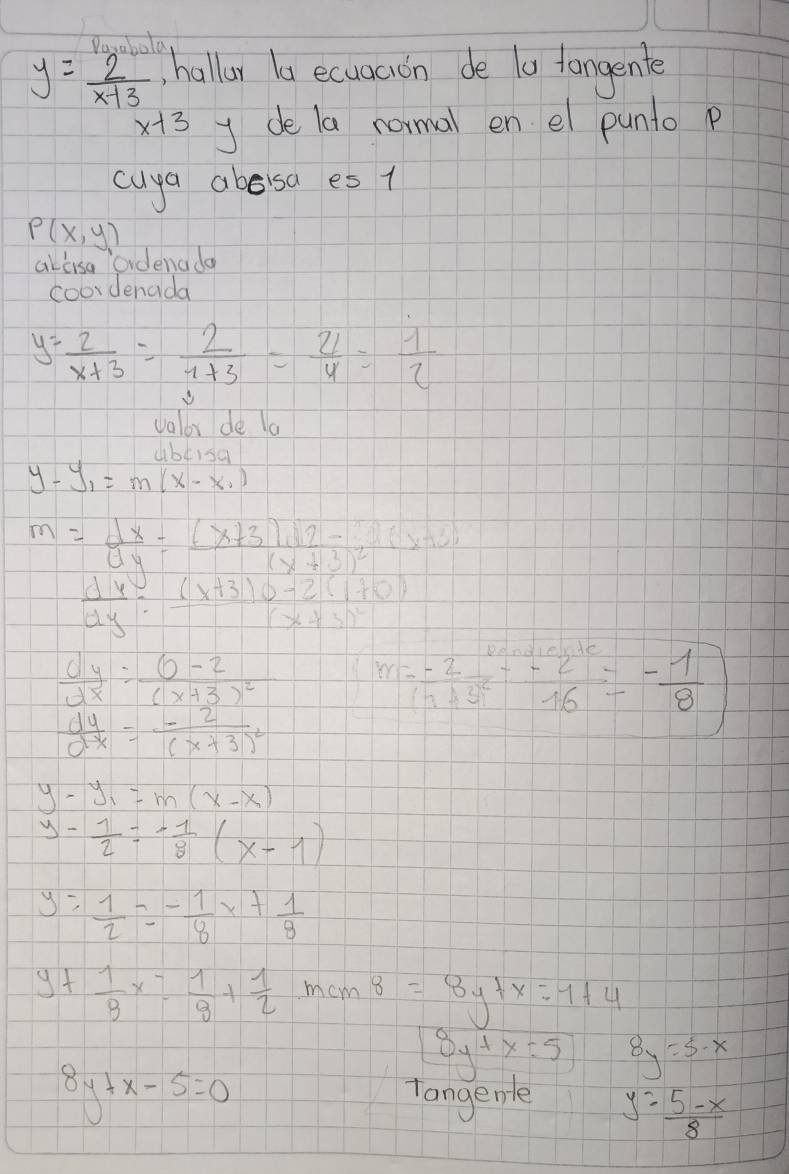 Parabola
y = 2/x+3, hallar la ecuación de la tangente
x+3 y de la normal en el punto P
cuya abcisa es 1
P(x,y)
abcisa ordenada
coordenada
y = 2/x+3 = 2/1+3 = 2/4 = 1/2
valor de la
abcisa
y - y₁ = m(x - x₁)
m = dx/dy = (x+3)d2 - 2d(x+3)/(x+3)²
dx/dy = (x+3)0-2(1+0)/(x+3)²
dy/dx = 0-2/(x+3)²
pendiente
m = -2/(1+3)² = -2/16 = -1/8
dy/dx = -2/(x+3)²
y - y₁ = m(x-x₁)
y - 1/2 = -1/8 (x-1)
y = 1/2 = -1/8 x + 1/8
y + 1/8 x = 1/8 + 1/2 mcm 8 = 8y+x = 1+4
8y+x=5 8y=5-x
8y+x-5=0 Tangente y = 5-x/8